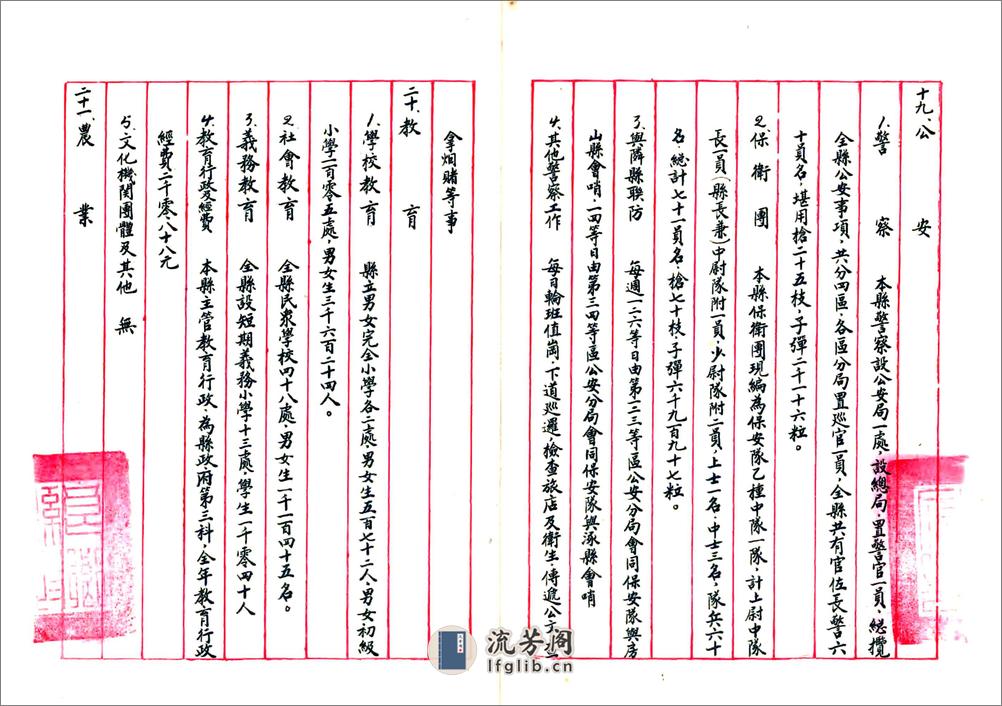 十九、公安
1. 警察 本縣警察設公安局一處，設總局，置警官一員，總攬
全縣公安事項，共分四區，各區分局置巡官一員，全縣共有官佐長警六
十員名，堪用槍二十五枝，子彈二千一十六粒。
2. 保衛團 本縣保衛團現編為保安隊乙種中隊一隊，計上尉中隊
長一員（縣長兼）中尉隊附一員，少尉隊附二員，上士一名，中士三名，隊兵六十
名，總計七十一員名，槍七十枝，子彈六千九百九十七粒。
3. 與隣縣聯防 每週一二六等日由第一二三等區公安分局會同保安隊與房
山縣會哨，一四等日由第三四等區公安分局會同保安隊與涿縣會哨
4. 其他警察工作 每日輪班值崗，下道巡邏，檢查旅店及衛生，傳遞公
拿烟賭等事
二十、教育
1. 學校教育 縣立男女完全小學各一處，男女生五百七十二人，男女初級
小學一百零五處，男女生三千六百二十四人。
2. 社會教育 全縣民眾學校四十八處，男女生一千一百四十五名。
3. 義務教育 全縣設短期義務小學十三處，學生一千零四十人
4. 教育行政及經費 本縣主管教育行政，為縣政府第三科，全年教育行政
經費二千零八十八元
5. 文化機関團體及其他 無
二十一、農業
流芳阁
lfglib.cn